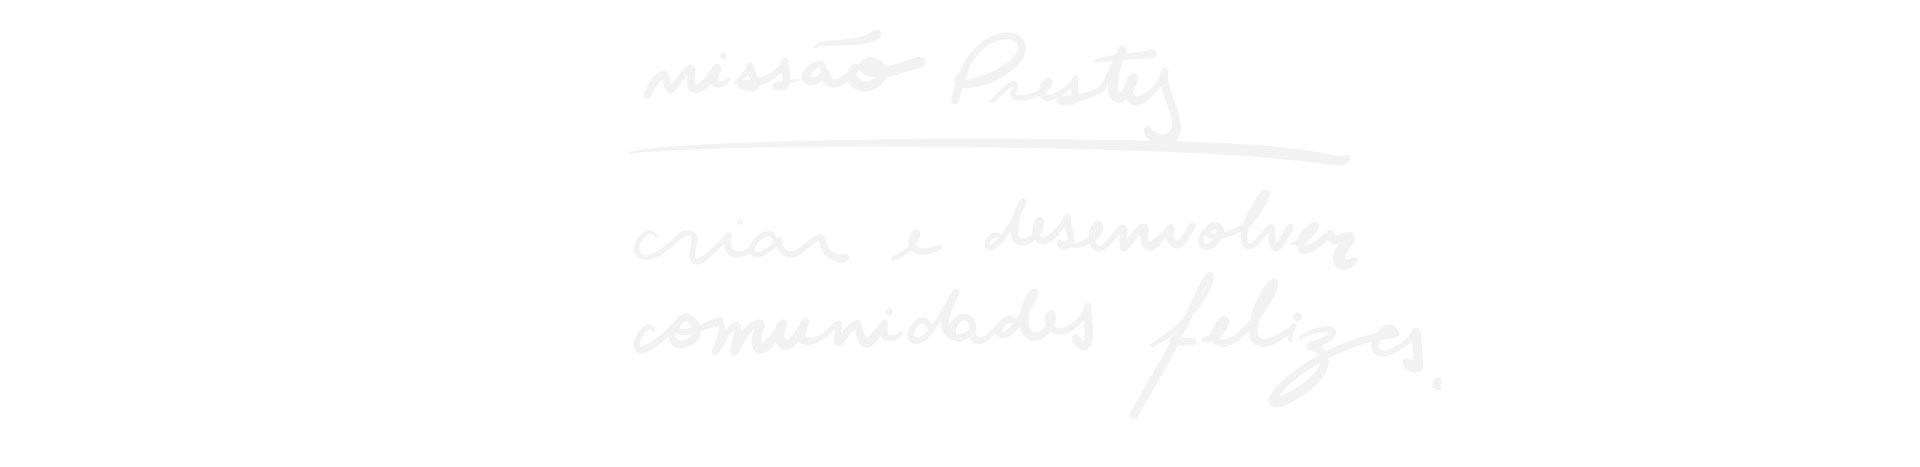 missão Prestes
criar e desenvolver
comunidades felizes.